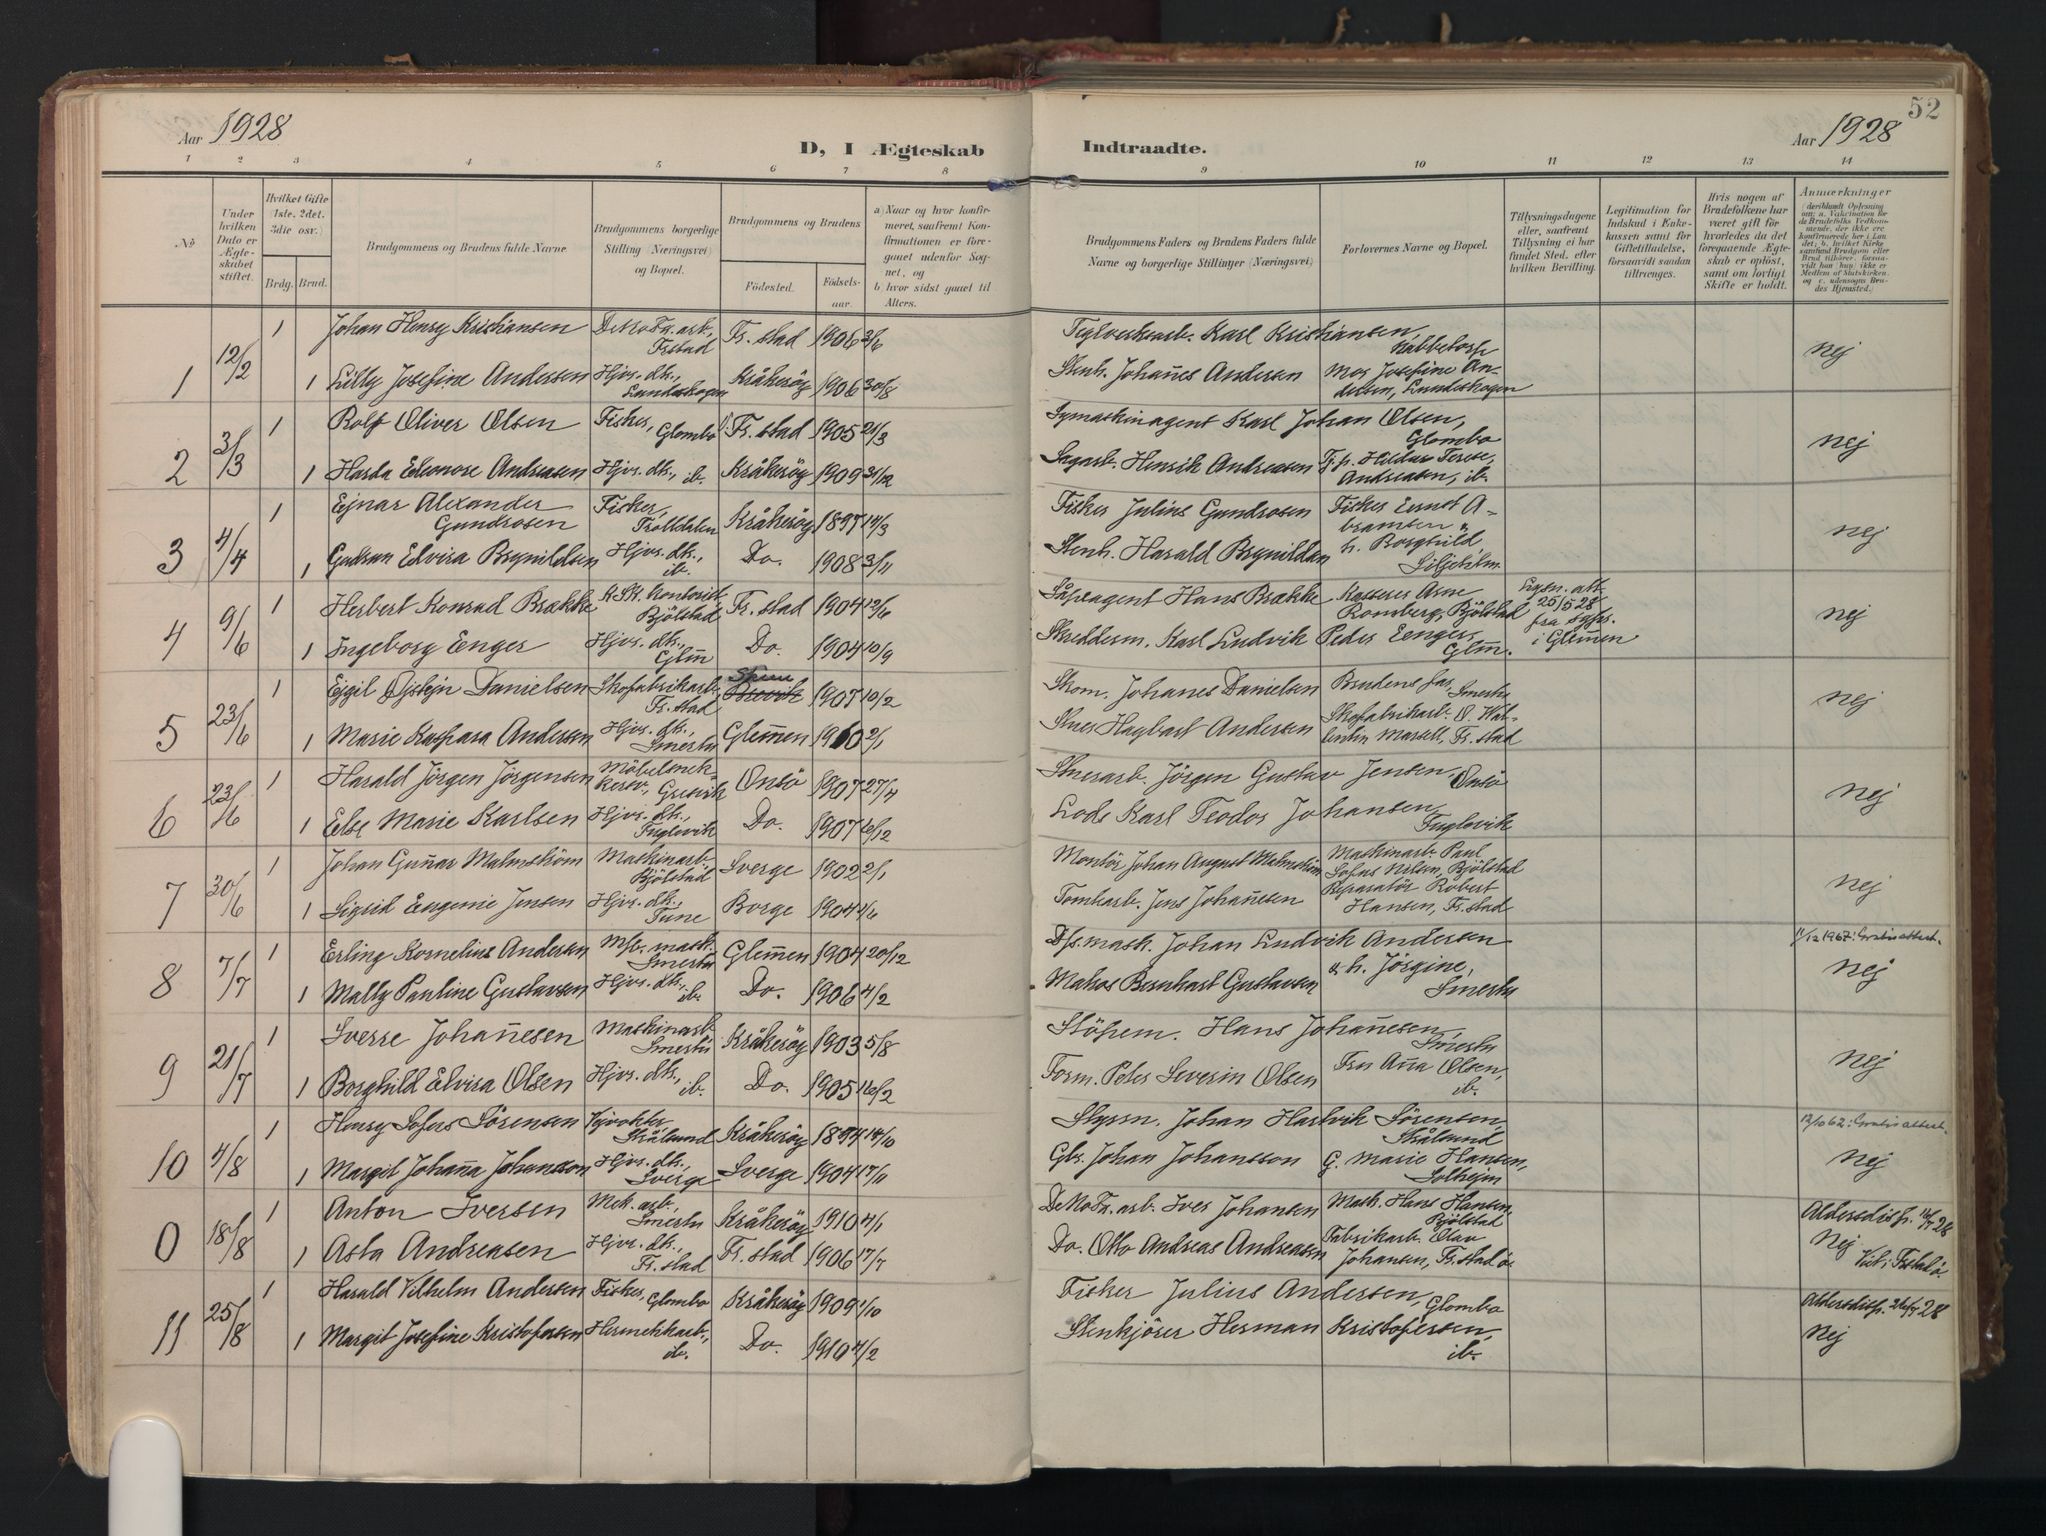 52
Aar 1928
D, I Ægteskab Indtraadte.
Aar 1928
1 2 3 4 5 6 7 8 9 10 11 12 13 14
№
Under hvilken Dato er Ægteskabet stiftet.
Hvilket Gifte (1ste, 2det, 3die osv.)
Brdg. Brud.
Brudgommens og Brudens fulde Navne.
Brudgommens borgerlige Stilling (Næringsvei) og Bopæl.
Brudgommens og Brudens
Fødested. Fødselsaar.
a) Naar og hvor konfirmeret, saafremt Konfirmationen er foregaaet udenfor Sognet, og
b) hvor sidst gaaet til Alters.
Brudgommens Faders og Brudens Faders fulde Navne og borgerlige Stillinger (Næringsvei)
Forlovernes Navne og Bopæl.
Tillysningsdagene eller, saafremt Tillysning ei har fundet Sted, efter hvilken Bevilling.
Legitimation for Indskud i Enkekassen samt for Giftetilladelse, forsaavidt saadan tiltrænges.
Hvis nogen af Brudefolkene har været gift før hvorledes da det foregaaende Ægteskab er opløst, samt om lovligt Skifte er holdt.
Anmærkninger
1 12/2
1 Johan Henry Kristiansen DeNoFa. arb., Frstad Fr. stad 1906 3/6 Teglverksarb. Karl Kristiansen, Kabbetorp
1 Lilly Josefine Andersen Hjvs. dt., Lundeskogen Kråkerøy 1906 30/8 Stenh. Johañes Andersen Mor Josefine Andersen, Lundeskogen nej
2 3/3
1 Rolf Oliver Olsen Fisker, Glombo Fr. stad 1905 21/3 Symaskinagent Karl Johan Olsen, Glombo
1 Harda Eleonore Andreasen Hjvs. dt., ib. Kråkerøy 1909 31/12 Sagarb. Henrik Andreasen Tj. p. Hildur Terese Andreasen, ib. nej
3 4/4
1 Ejnar Alexander Gundrosen Fisker, Trolldalen Kråkerøy 1897 14/3 Fisker Julius Gundrosen Fisker Ernst Abramsen
1 Gudrun Elvira Brynildsen Hjvs. dt., ib. Do. 1908 3/11 Stenh. Harald Brynildsen h. Borghild Liljeholm nej
4 9/6
1 Herbert Konrad Brække Kontorist Bjölstad Fr. stad 1904 12/6 Såpeagent Hans Brække Kasserer Arne Romberg, Bjölstad Lysn. att. 25/5 28 fra sgpr. i Glem̃en
1 Ingeborg Enger Hjvs. dt., Glm̃ Do. 1904 10/9 Skredderm. Karl Ludvik Peder Eenger, Glm̃. nej
5 23/6
1 Ejgil Øistejn Danielsen Skofabrikarb., Fr. stad Skien Brevik 1907 10/2 Skom. Johañes Danielsen Brudens far, Smertu
1 Marie Kaspara Andersen Hjvs. dt., Smertu Glem̃en 1910 2/1 Hagbart Andersen Skofabrikarb. Fr. stad nej
6 23/6
1 Harald Jörgen Jörgensen Möbelsnekkersv., Gresvik Onsö 1907 27/4 Stuerarb. Jörgen Gustav Jensen, Onsö
1 Else Marie Karlsen Hjvs. dt., Fuglevik Do. 1907 16/12 Lods Karl Teodor Johansen, Fuglevik nej
7 30/6
1 Johan Guñar Malmström Maskinarb. Bjölstad Sverge 1902 2/1 Montör Johan August Malmström Maskinarb. Paul Sofus Nilsen, Bjölstad
1 Sigrid Eugenie Jensen Hjvs. dt., Tune Borge 1904 4/6 Tomtearb. Jens Johañesen Reparatör Robert Hansen, Fr. stad nej
8 7/7
1 Erling Kornelius Andersen M/b. mask. Smertu Glem̃en 1904 20/12 D/s. mask. Johan Ludvik Andersen 11/12 1967: Gratis attest.
1 Mally Pauline Gustavsen Hjvs. dt., ib. Do. 1906 4/2 Matros Bernhart Gustavsen & h. Jörgine, Smertu nej
9 21/7
1 Sverre Johañesen Maskinarb. Smertu Kråkerøy 1903 5/8 Stöpem. Hans Johañesen, Smertu
1 Borghild Elvira Olsen Hjvs. dt., ib. Do. 1905 16/2 Form. Peter Severin Olsen Fru Aña Olsen, ib. nej
10 4/8
1 Henry Sofus Sörensen Veivokter Stålsund Kråkerøy 1894 14/10 Styrm. Johan Hartvik Sörensen, Stålsund 12/10 62: Gratis attest.
1 Margit Johaña Johansson Hjvs. dt., Sverge Sverge 1904 17/11 Gbr. Johan Johansson G. Marie Hansen, Solhejm nej
0 18/8
1 Anton Iversen Mek. arb., Smertu Kråkerøy 1910 4/1 DeNoFa. arb. Iver Johansen Mask. Hans Hansen, Bjölstad Aldersdisp. 16/7 28
1 Asta Andreasen Hjvs. dt., Fr. stad Fr. stad 1906 17/7 Do. Otto Andreas Andreasen Fabrikarb. Olav Johansen, Fr. stad ö. Nej Viet i Frstad ö.
11 25/8
1 Harald Vilhelm Andersen Fisker, Glombo Kråkerøy 1909 1/10 Fisker Julius Andersen, Glombo Aldersdisp. 26/7 28
1 Margit Josefine Kristofersen Hermetikarb., ib. Do. 1910 4/2 Stenkjörer Herman Kristofersen, ib. Nej